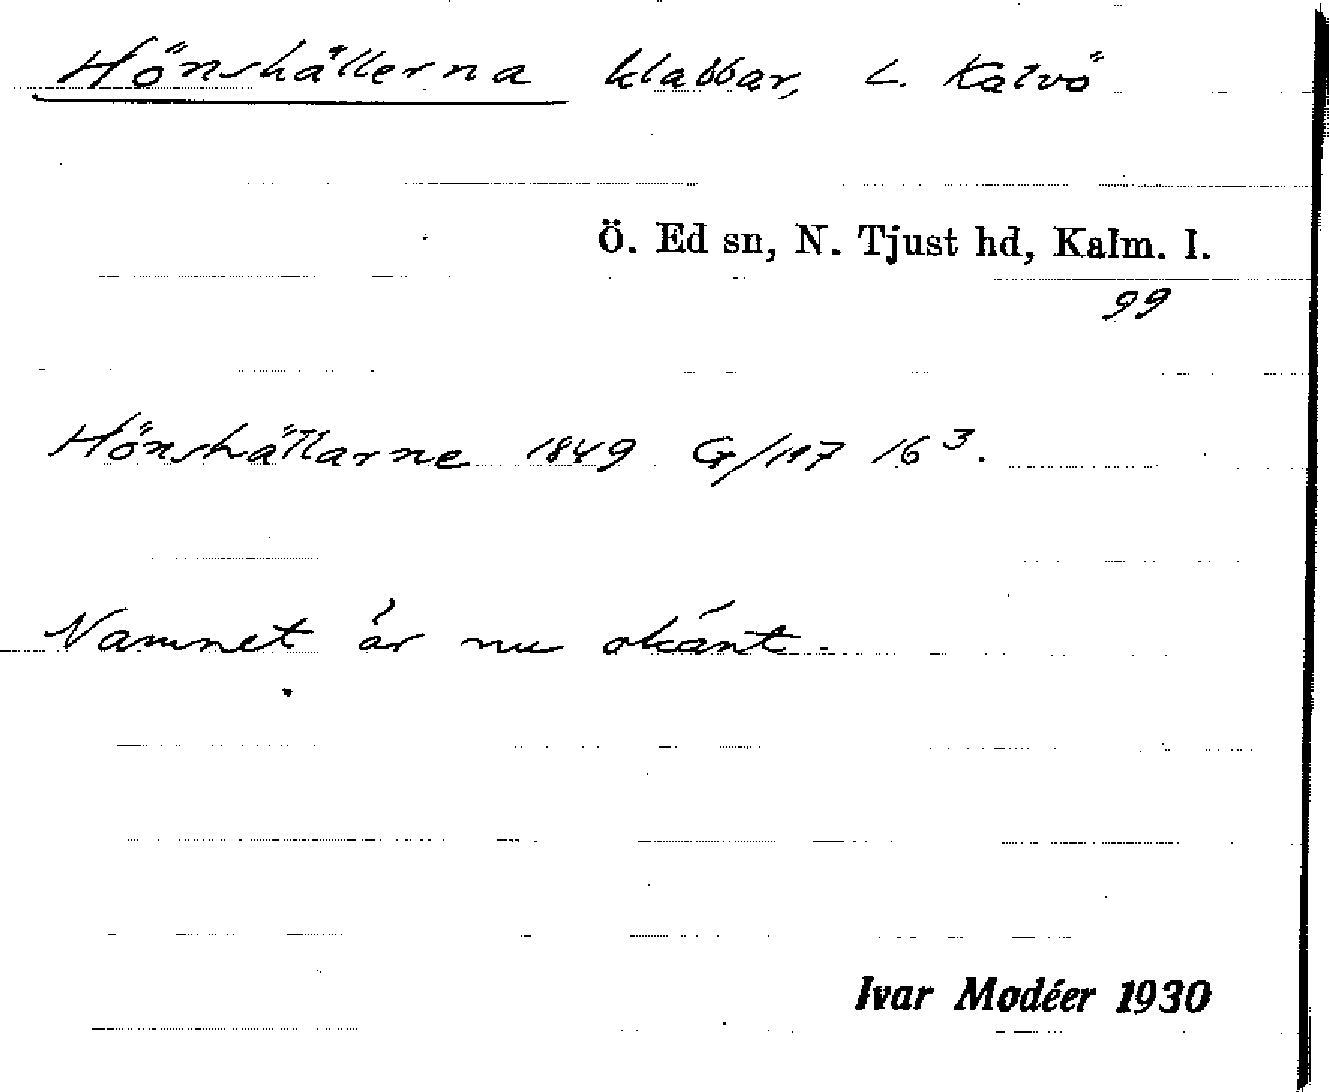 Hönshällerna klabbar, L. Kalvö
Ö. Ed sn, N. Tjust hd, Kalm. l.
99
Hönshällarne 1849 G/117 16³.
Namnet är nu okänt.
Ivar Modéer 1930